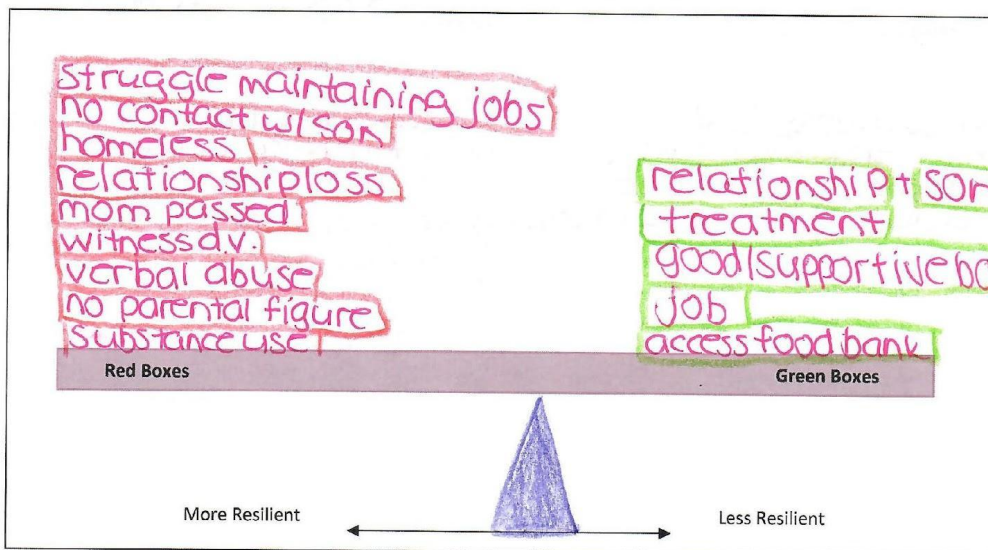 struggle maintaining jobs
no contact w/son
homeless
relationship loss
mom passed
witness d.v.
verbal abuse
no parental figure
substance use
relationship + son
treatment
good/supportive
job
access food bank
Red Boxes
Green Boxes
More Resilient
Less Resilient